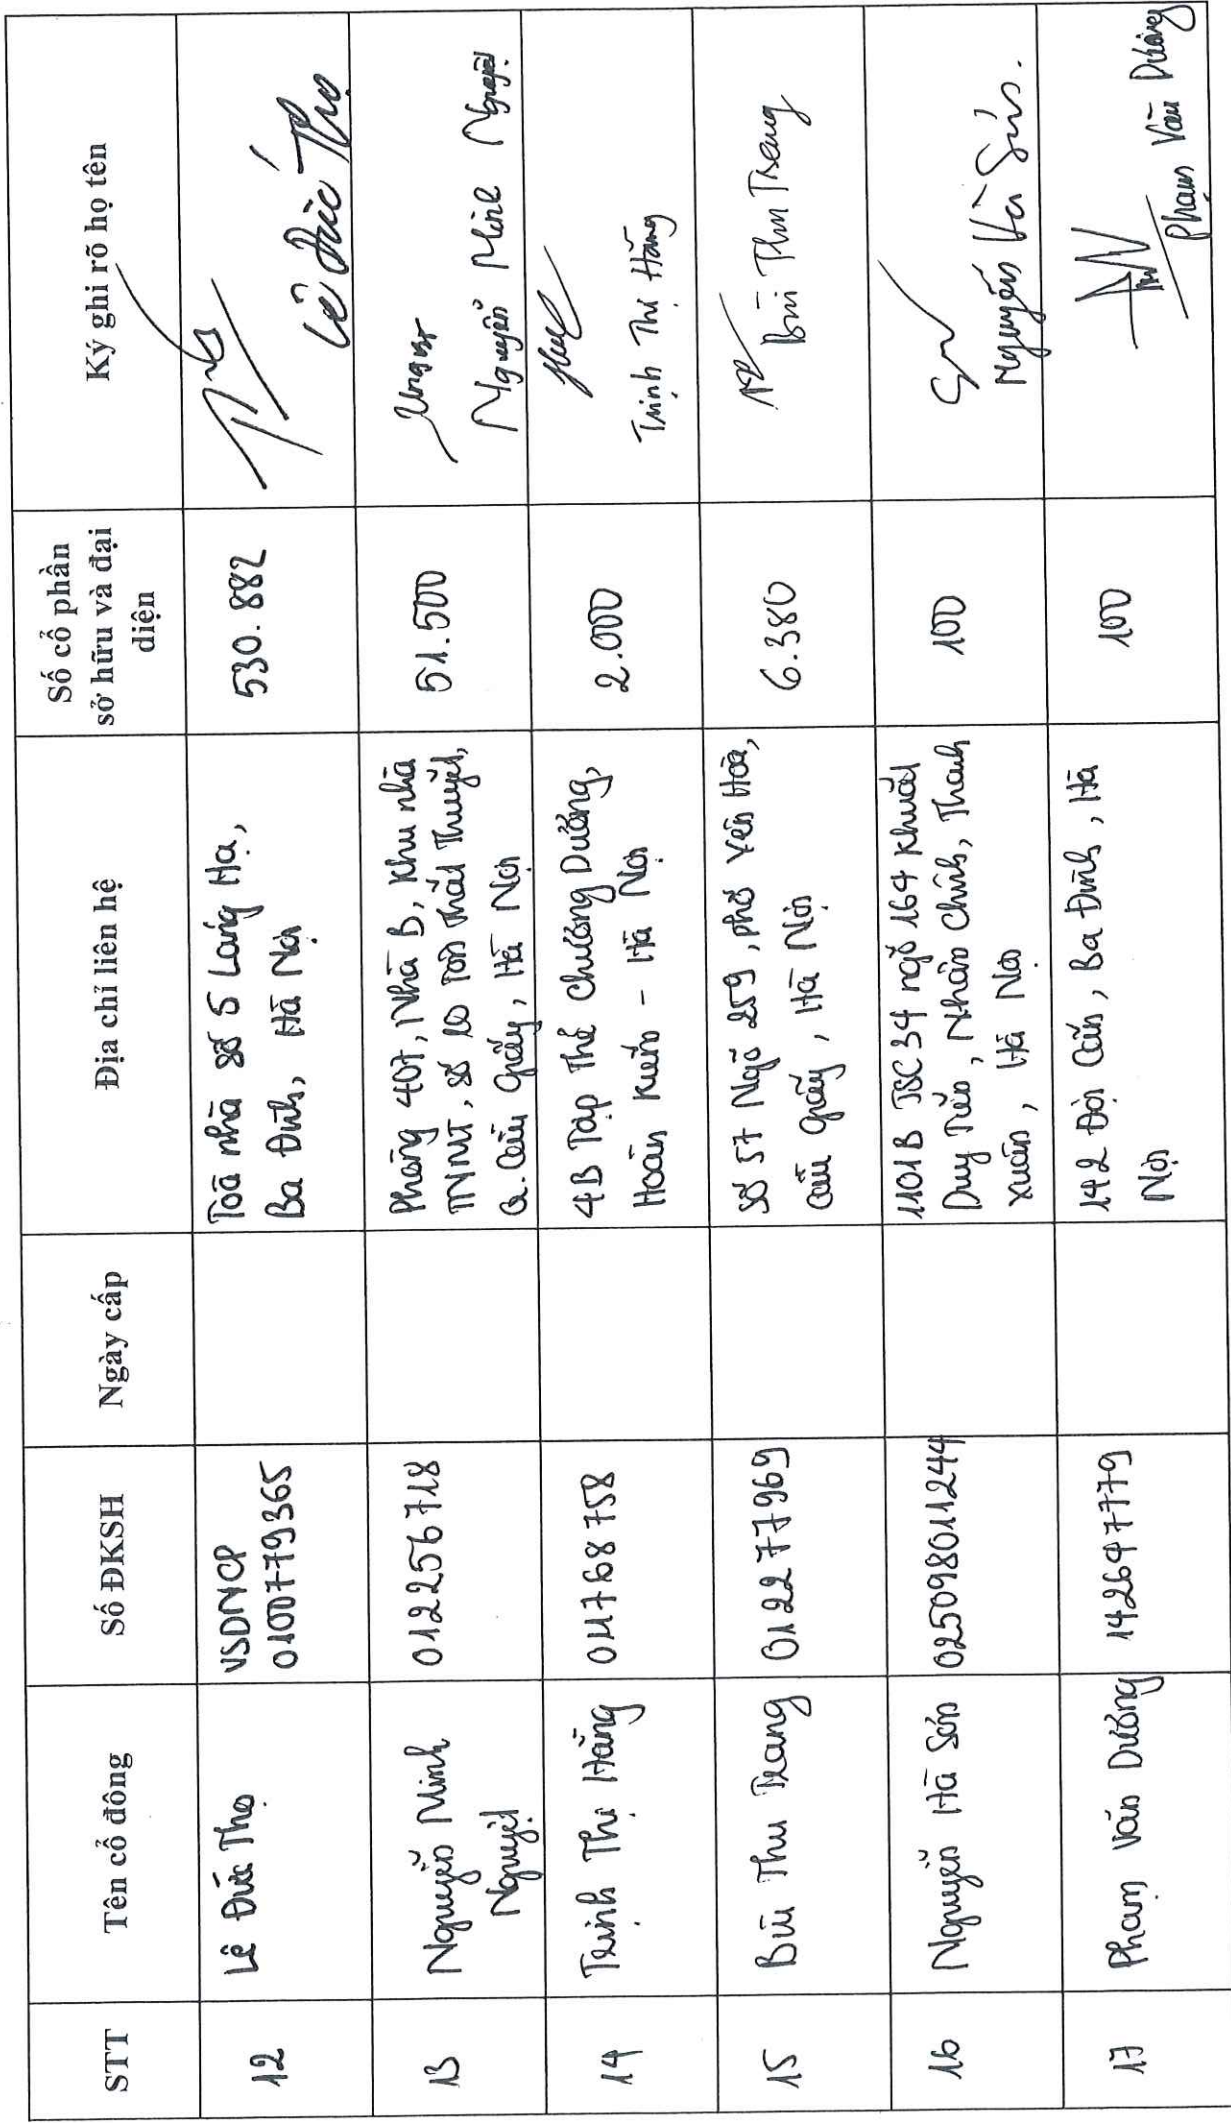 STT
Tên cổ đông
Số ĐKSH
Ngày cấp
Địa chỉ liên hệ
Số cổ phần
sở hữu và đại
diện
Ký ghi rõ họ tên
12
Lê Đức Thọ
VSDNCP
0100779365
Toà nhà số 5 Láng Hạ,
Ba Đình, Hà Nội
530.882
Lê Đức Thọ
13
Nguyễn Minh
Nguyệt
012256718
Phòng 407, Nhà B, Khu nhà
TNMT, số 10 Tôn Thất Thuyết,
Q. Cầu Giấy, Hà Nội
51.500
Nguyễn Minh Nguyệt
14
Trịnh Thị Hằng
011768758
4B Tập Thể Chương Dương,
Hoàn Kiếm - Hà Nội
2.000
Trịnh Thị Hằng
15
Bùi Thu Trang
012277969
Số 57 Ngõ 259, phố Yên Hòa,
Cầu Giấy, Hà Nội
6.380
Bùi Thu Trang
16
Nguyễn Hà Sơn
025098011244
1101B JSC 34 ngõ 164 Khuất
Duy Tiến, Nhân Chính, Thanh
Xuân, Hà Nội
100
Nguyễn Hà Sơn.
17
Phạm Văn Dương
142697779
142 Đội Cấn, Ba Đình, Hà
Nội
100
Phạm Văn Dương